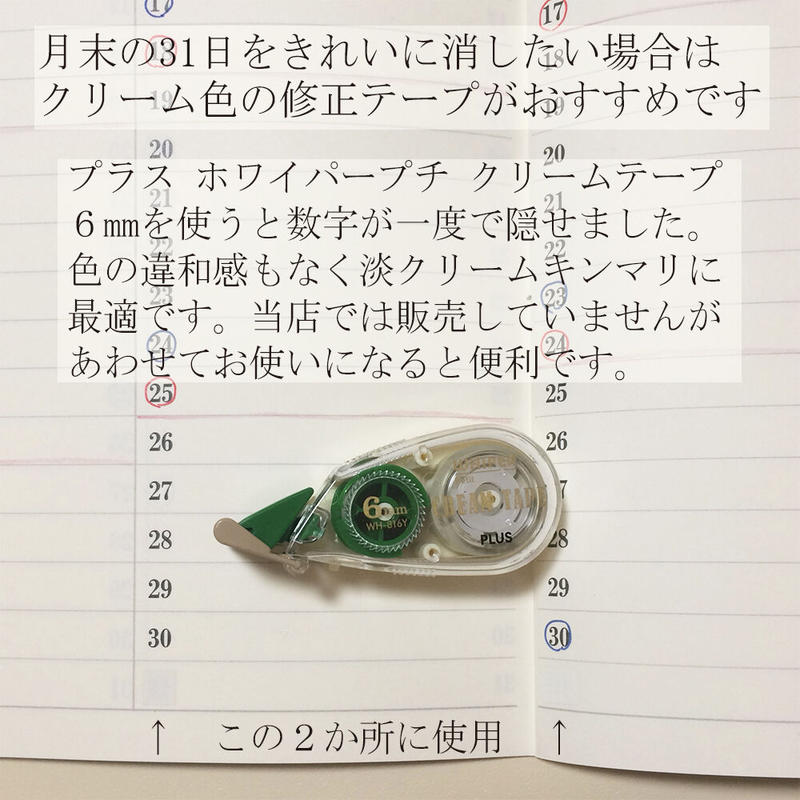 月末の31日をきれいに消したい場合は
クリーム色の修正テープがおすすめです
プラス ホワイパープチ クリームテープ
６㎜を使うと数字が一度で隠せました。
色の違和感もなく淡クリームキンマリに
最適です。当店では販売していませんが
あわせてお使いになると便利です。
17 17
18 18
19 19
20 20
21 21
22 22
23 23
24 24
25 25
26
27 27
28 28
29 29
30 30
6mm
WH-816Y
CREAM TAPE
PLUS
↑ この２か所に使用 ↑